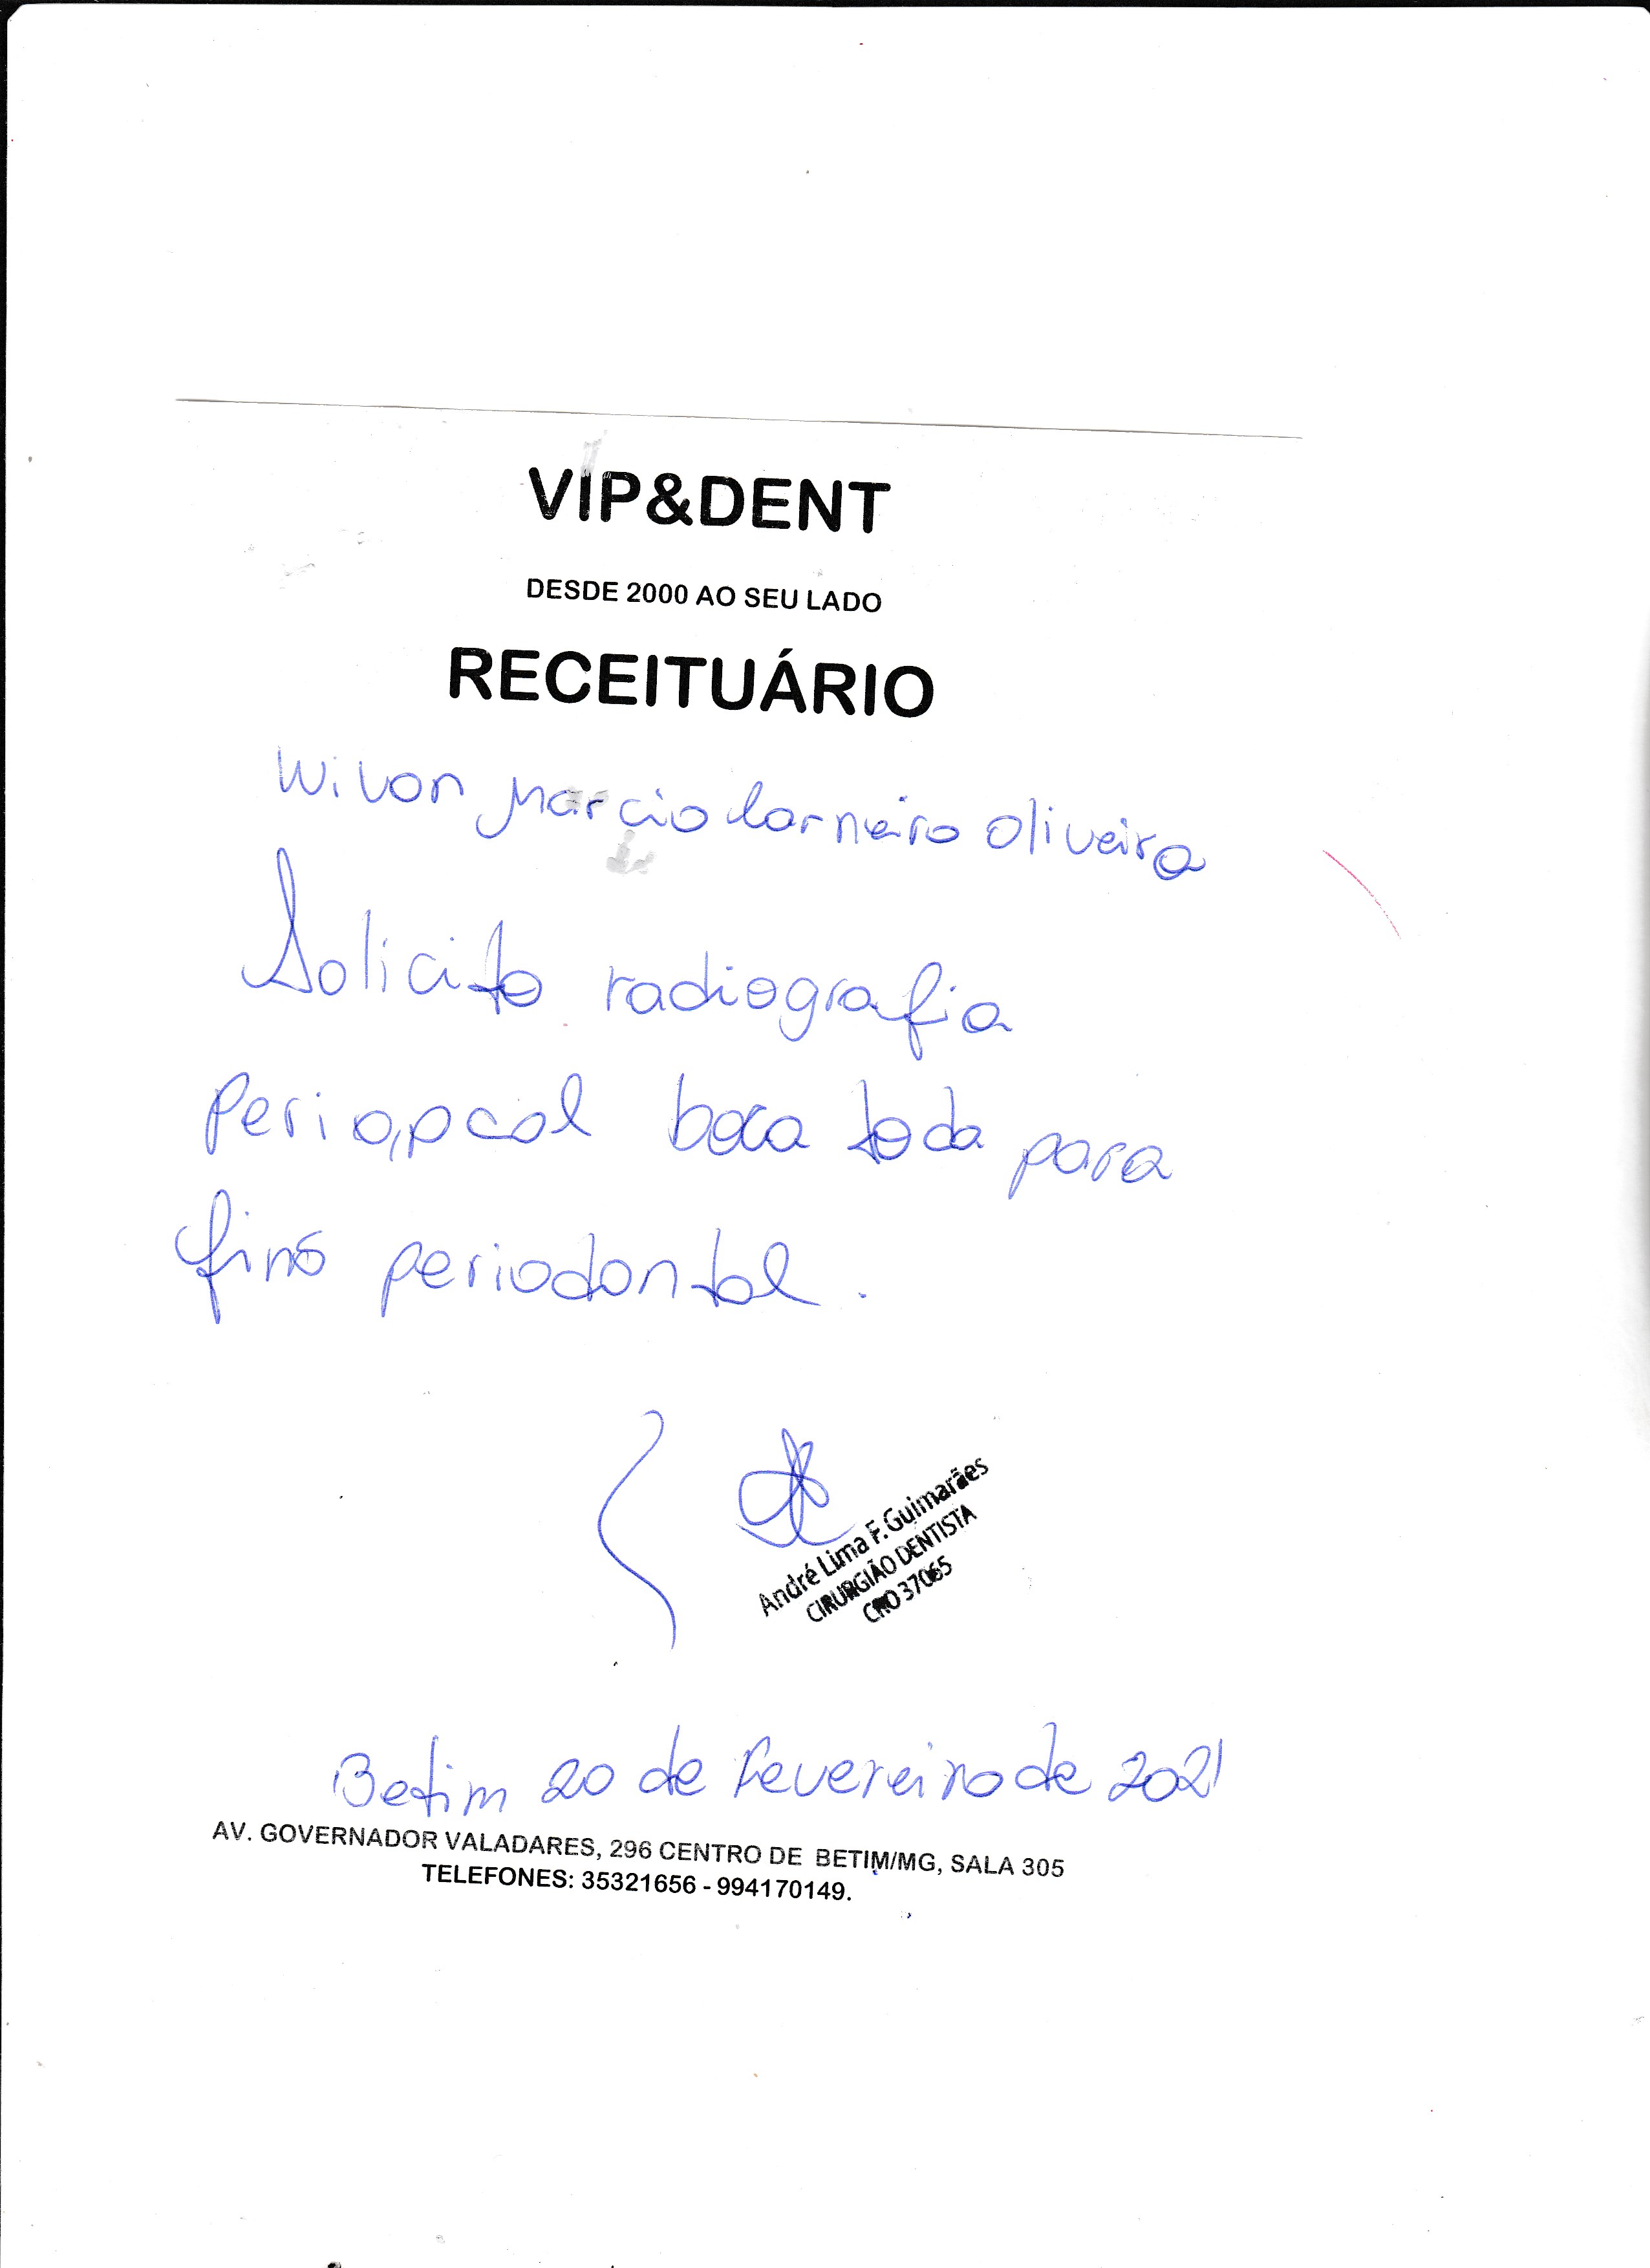 VIP&DENT
DESDE 2000 AO SEU LADO
RECEITUÁRIO
Wilson Marcio Carneiro Oliveira
Solicito radiografia
periapical boca toda para
fins periodontal.
André Lima F. Guimarães
CIRURGIÃO DENTISTA
CRO 37065
Betim 20 de Fevereiro de 2021
AV. GOVERNADOR VALADARES, 296 CENTRO DE BETIM/MG, SALA 305
TELEFONES: 35321656 - 994170149.